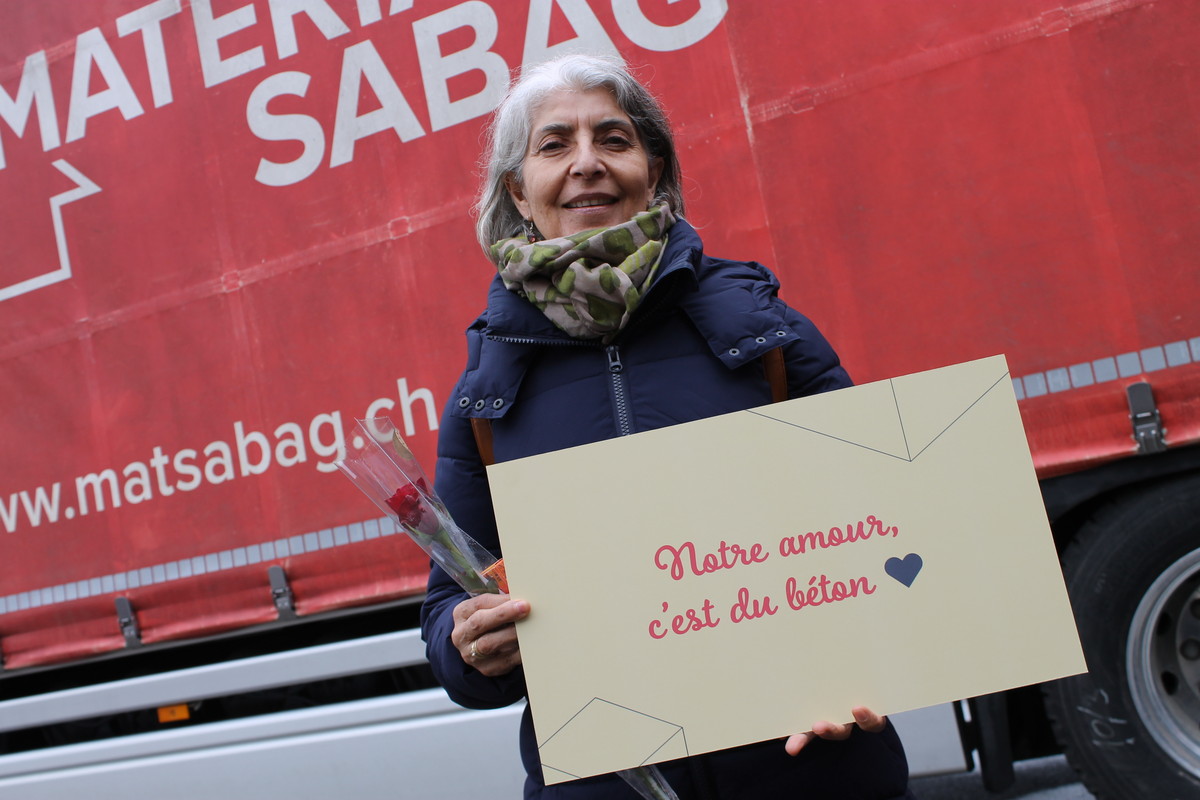 MATERIA
SABAG
www.matsabag.ch
Notre amour,
c'est du béton